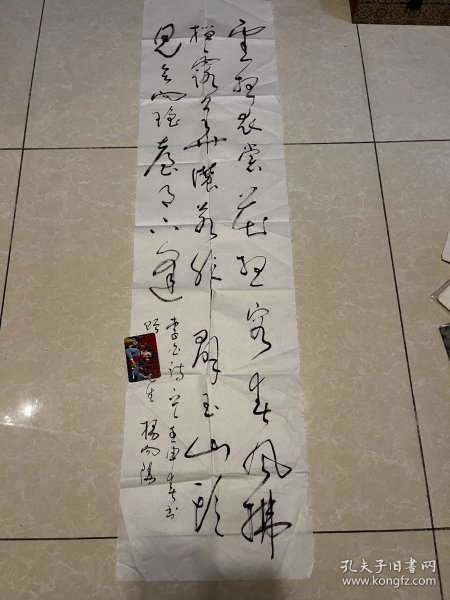 云想衣裳花想容春风拂
槛露华浓若非群玉山头
见会向瑶台月下逢
李白诗一首 壬申春书
赠
杨向阳
孔夫子旧书网
www.kongfz.com